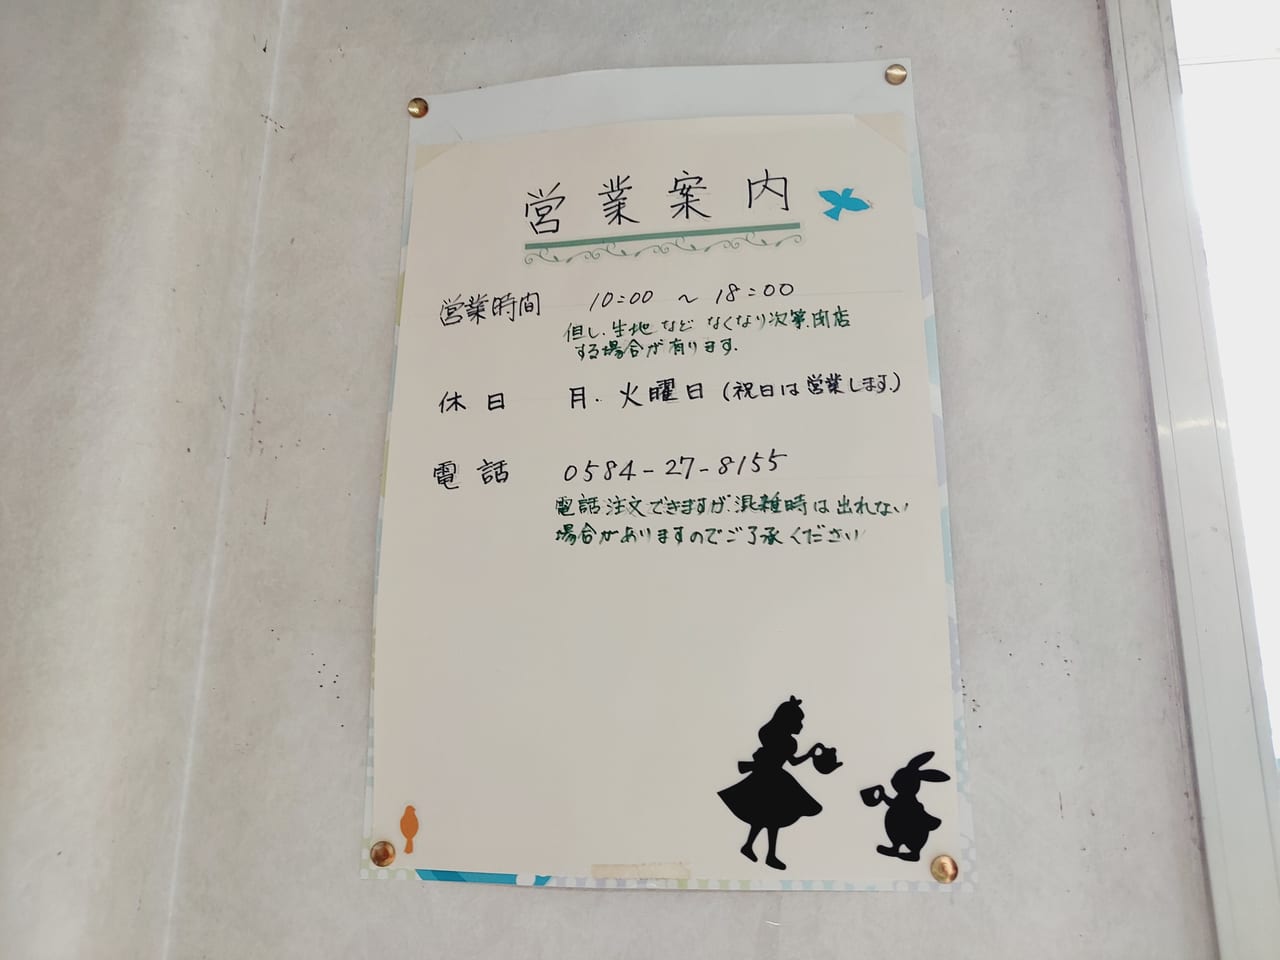 営業案内
営業時間 10:00 ~ 18:00
但し、生地など なくなり次第、閉店
する場合が有ります。
休日 月・火曜日(祝日は営業します。)
電話 0584-27-8155
電話注文できますが、混雑時は出れない
場合がありますのでご了承ください